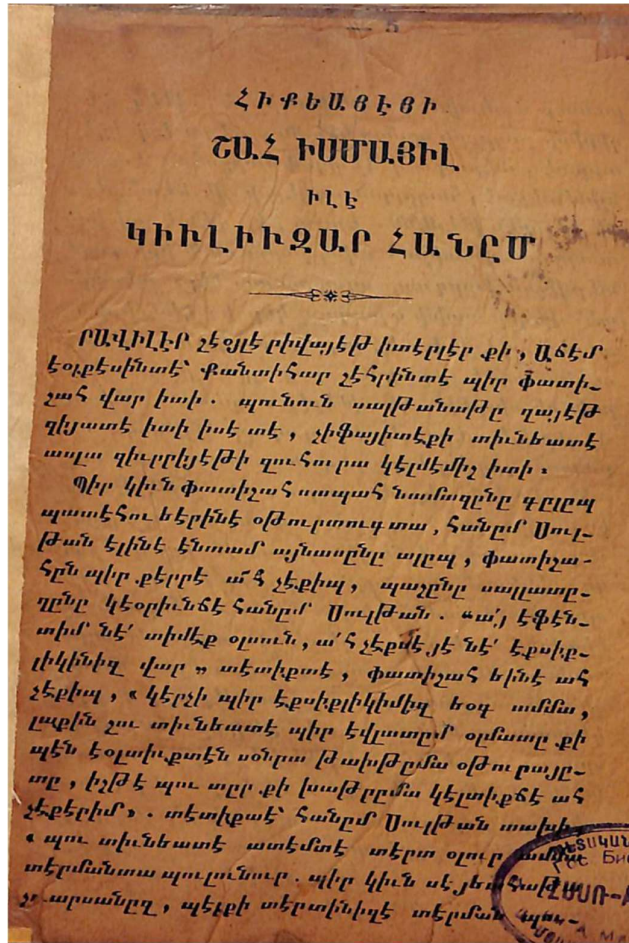 — 5
ՀԻՔԵԱՅԷՅԻ
ՇԱՀ ԻՍՄԱՅԻԼ
ԻԼԷ
ԿԻՒԼԻՒԶԱՐ ՀԱՆԸՄ
ՐԱՎԻԼԷՐ չէօյլէ րիվայէթ իտէրլէր քի, Աճէմ
էօլքէսինտէ՝ Քանտիհար չէհրինտէ պիր փատի-
շահ վար իտի. պունուն սալթանաթը ղայէթ
զիյատէ իտի իսէ տէ, չիֆայիտէքի տիւնեատէ
ասլա զիւրրիյէթի զուհուրա կէլմէմիշ իտի։
Պիր կիւն փատիշահ սապահ նամազընը գըլըպ
պատէհու եէրինէ օթուրտուգտա, հանըմ Սուլ-
թան էլինէ էնտամ այնասընը ալըպ, փատիշա-
հըն պիր քէրրէ ա՛հ չէքիպ, պաշընը սալլատը-
ղընը կէօրիւնճէ հանըմ Սուլթան. “ա՛յ էֆէն-
տիմ նէ՛ տիմէք օլսուն, ա՛հ չէքմէյէ նէ՛ էքսիք-
լիկինիզ վար„ տէտիքտէ, փատիշահ եինէ ահ
չէքիպ, «կէրչի պիր էքսիքլիկիմիզ եօգ ամմա,
լաքին շու տիւնեատէ պիր էվլատըմ օլմատը քի
պէն էօլտիւքտէն սօնրա թախթըմա օթուրայը-
տը, իշթէ պու տըր քի խաթըրըմա կէլտիքճէ ահ
չէքէրիմ». տէտիքտէ՝ հանըմ Սուլթան տախի,
«պու տիւնեատէ ատէմտէ տէրտ օլուր ամմա
տէրմանտա պուլունուր. պիր կիւն սէյեահաթա
չըգարսանըզ, պէլքի տէրտինիզէ տէրման պու-